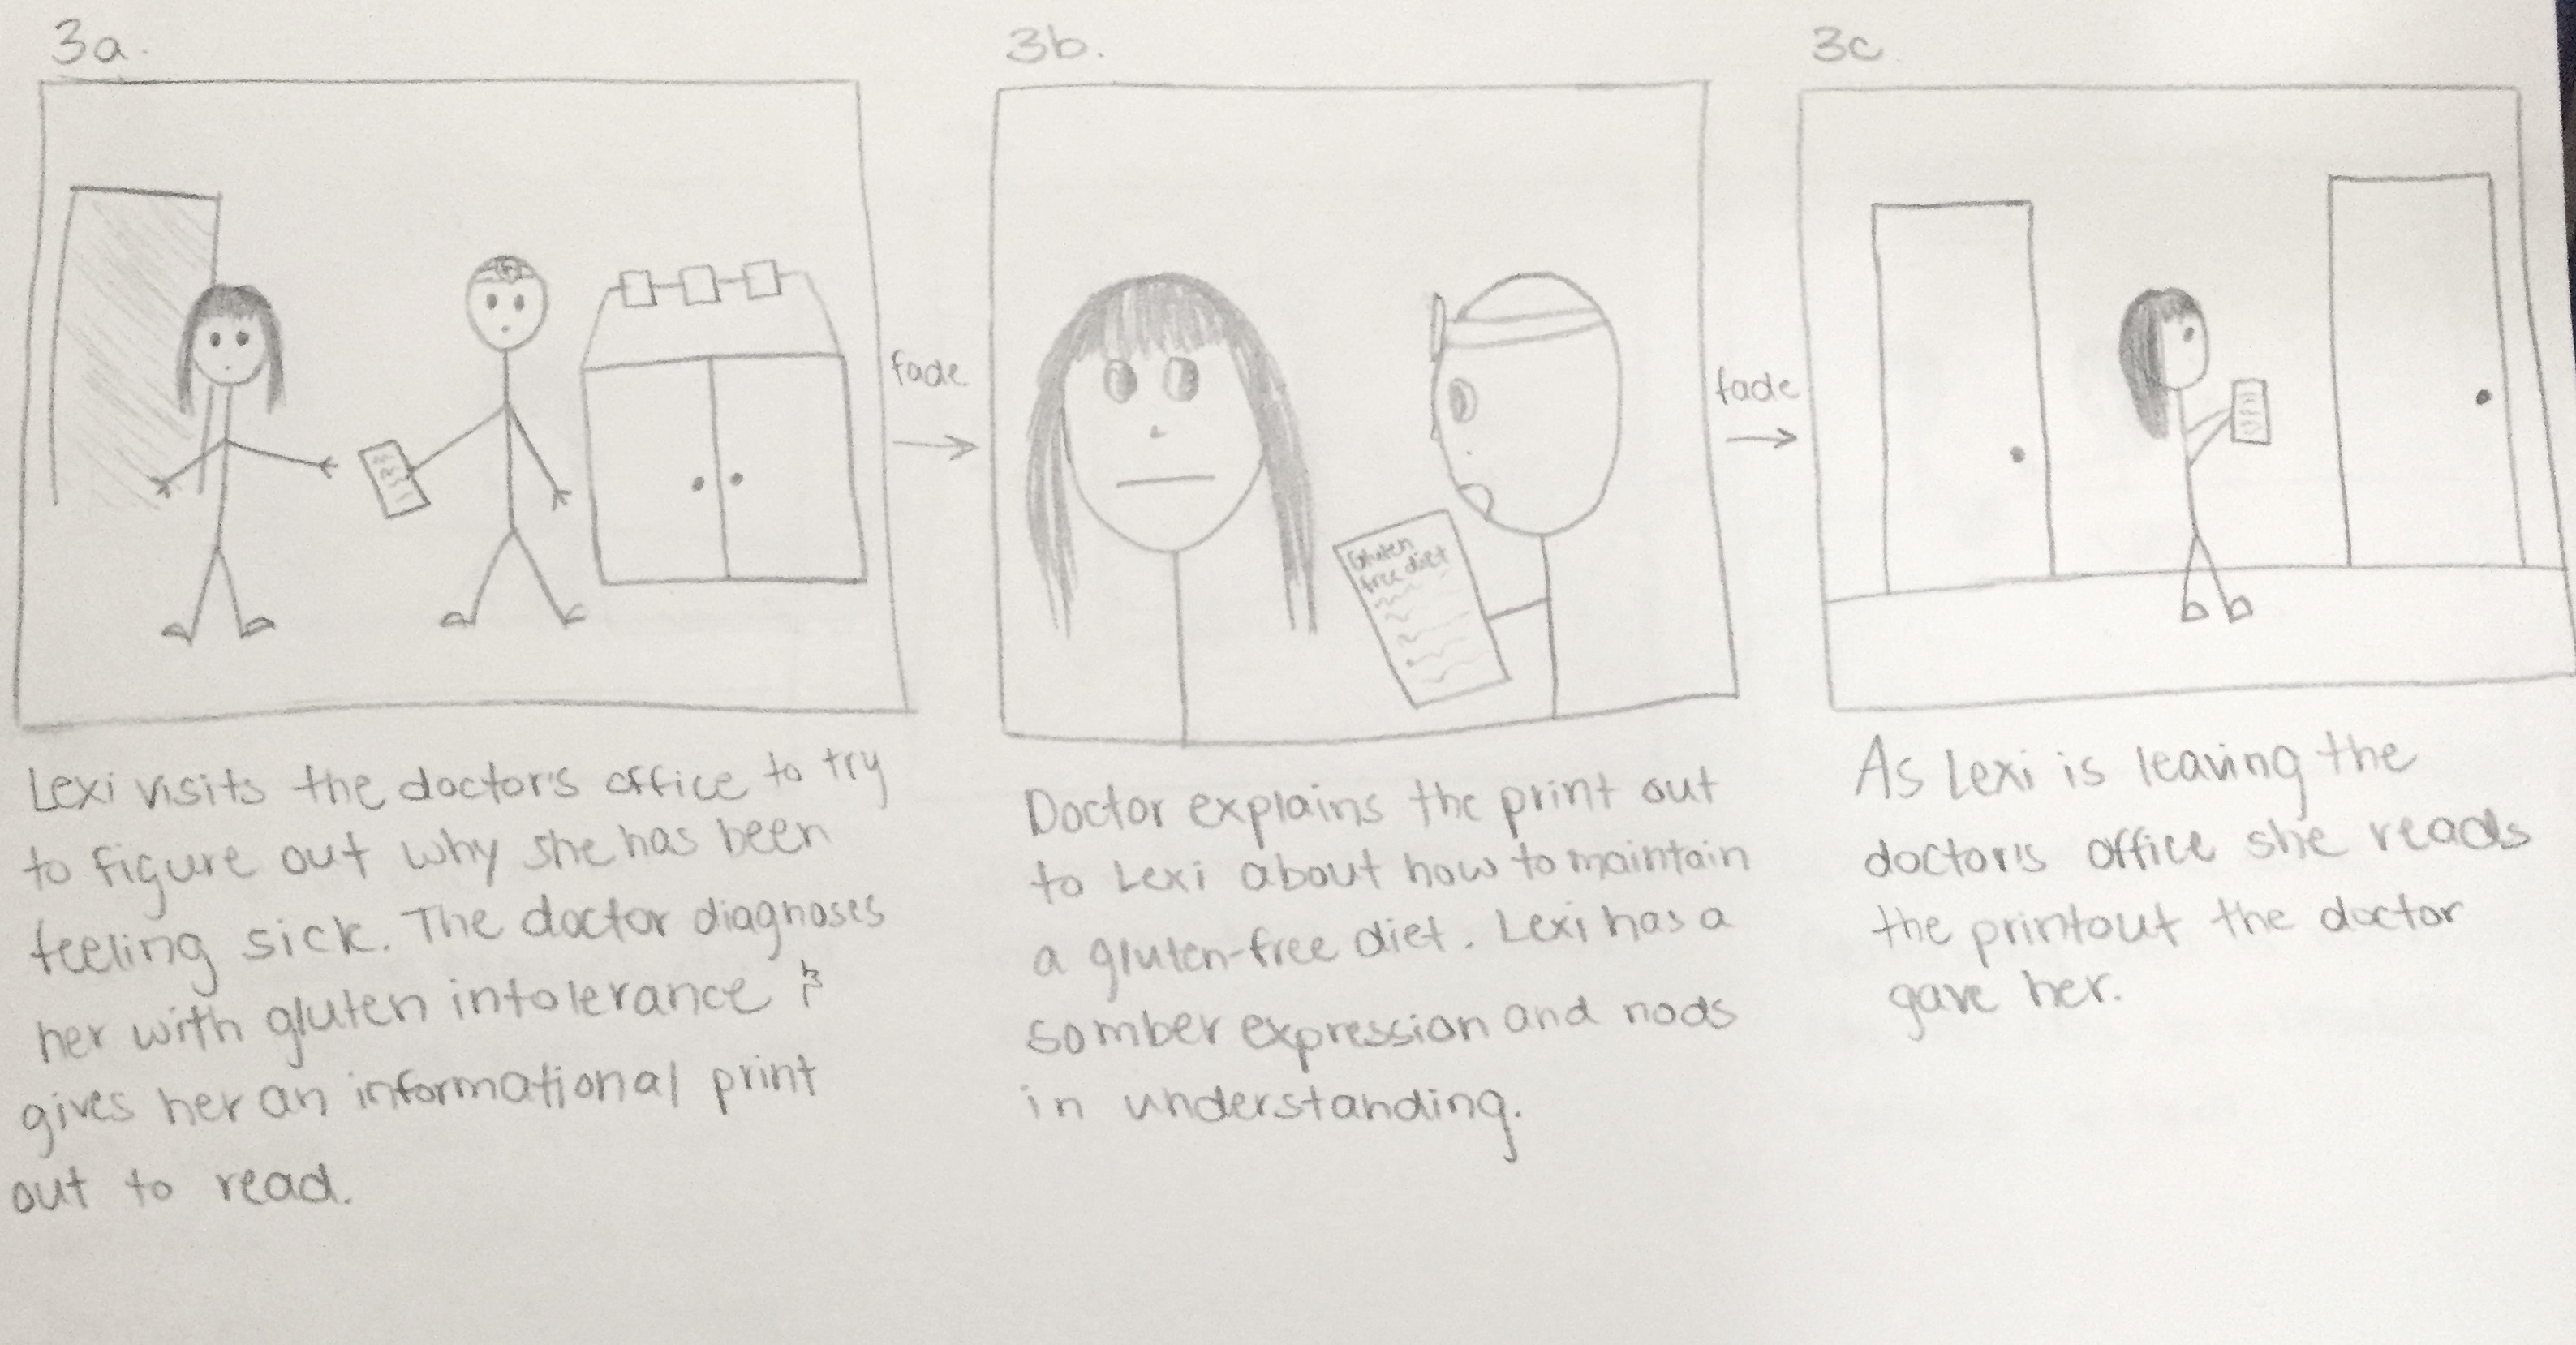 3a.
Lexi visits the doctor's office to try
to figure out why she has been
feeling sick. The doctor diagnoses
her with gluten intolerance &
gives her an informational print
out to read.
fade
3b.
Gluten
free diet
Doctor explains the print out
to Lexi about how to maintain
a gluten-free diet. Lexi has a
somber expression and nods
in understanding.
fade
3c
As Lexi is leaving the
doctor's office she reads
the printout the doctor
gave her.